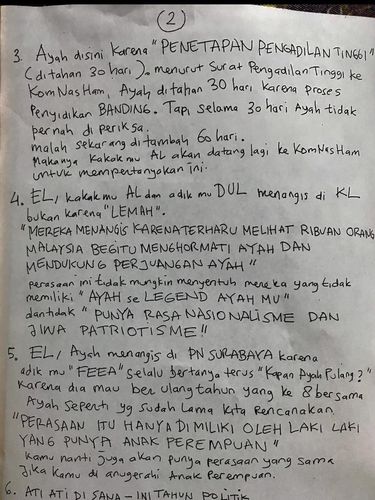 (2)
3. Ayah disini Karena "PENETAPAN PENGADILAN TINGGI"
(ditahan 30 hari). menurut Surat Pengadilan Tinggi ke
KomNasHam, Ayah ditahan 30 hari karena proses
Penyidikan BANDING. Tapi selama 30 hari Ayah tidak
pernah di periksa.
malah sekarang ditambah 60 hari.
Makanya kakakmu AL akan datang lagi ke KomNasHam
untuk mempertanyakan ini.
4. EL, kakakmu AL dan adik mu DUL menangis di KL
bukan karena "LEMAH".
"MEREKA MENANGIS KARENA TERHARU MELIHAT RIBUAN ORANG
MALAYSIA BEGITU MENGHORMATI AYAH DAN
MENDUKUNG PERJUANGAN AYAH"
perasaan ini tidak mungkin menyentuh mereka yang tidak
memiliki "AYAH se LEGEND AYAH MU"
dan tidak "PUNYA RASA NASIONALISME DAN
JIWA PATRIOTISME!!
5. EL, Ayah menangis di PN SURABAYA karena
adik mu "FEEA" selalu bertanya terus "Kapan Ayah Pulang?"
Karena dia mau ber ulang tahun yang ke 8 bersama
Ayah seperti yg sudah lama kita rencanakan.
"PERASAAN ITU HANYA DIMILIKI OLEH LAKI LAKI
YANG PUNYA ANAK PEREMPUAN"
kamu nanti juga akan punya perasaan yang sama
Jika kamu di anugerahi Anak Perempuan.
6. ATI ATI DI SANA - INI TAHUN POLITIK